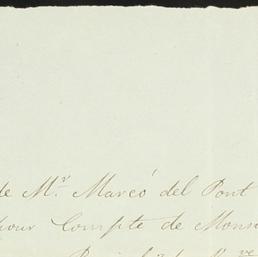 de Mr. Marcó del Pont
pour Compte de Mons